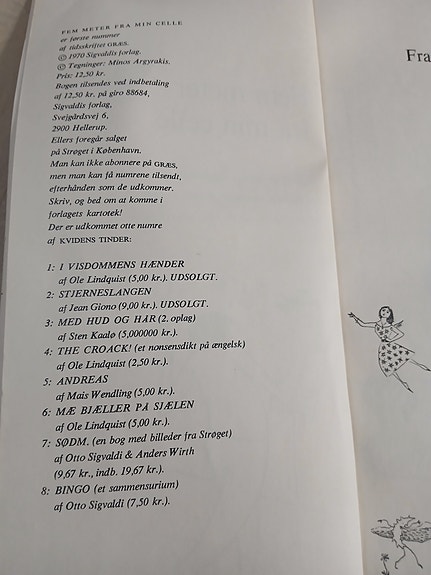 FEM METER FRA MIN CELLE
er første nummer
af tidsskriftet GRÆS.
© 1970 Sigvaldis forlag.
© Tegninger: Minos Argyrakis.
Pris: 12,50 kr.
Bogen tilsendes ved indbetaling
af 12,50 kr. på giro 88684,
Sigvaldis forlag,
Svejgårdsvej 6,
2900 Hellerup.
Ellers foregår salget
på Strøget i København.
Man kan ikke abonnere på GRÆS,
men man kan få numrene tilsendt,
efterhånden som de udkommer.
Skriv, og bed om at komme i
forlagets kartotek!
Der er udkommet otte numre
af KVIDENS TINDER:
1: I VISDOMMENS HÆNDER
af Ole Lindquist (5,00 kr.). UDSOLGT.
2: STJERNESLANGEN
af Jean Giono (9,00 kr.). UDSOLGT.
3: MED HUD OG HÅR (2. oplag)
af Sten Kaalø (5,000000 kr.).
4: THE CROACK! (et nonsensdikt på ængelsk)
af Ole Lindquist (2,50 kr.).
5: ANDREAS
af Mais Wendling (5,00 kr.).
6: MÆ BJÆLLER PÅ SJÆLEN
af Ole Lindquist (5,00 kr.).
7: SØDM. (en bog med billeder fra Strøget)
af Otto Sigvaldi & Anders Wirth
(9,67 kr., indb. 19,67 kr.).
8: BINGO (et sammensurium)
af Otto Sigvaldi (7,50 kr.).
Fra